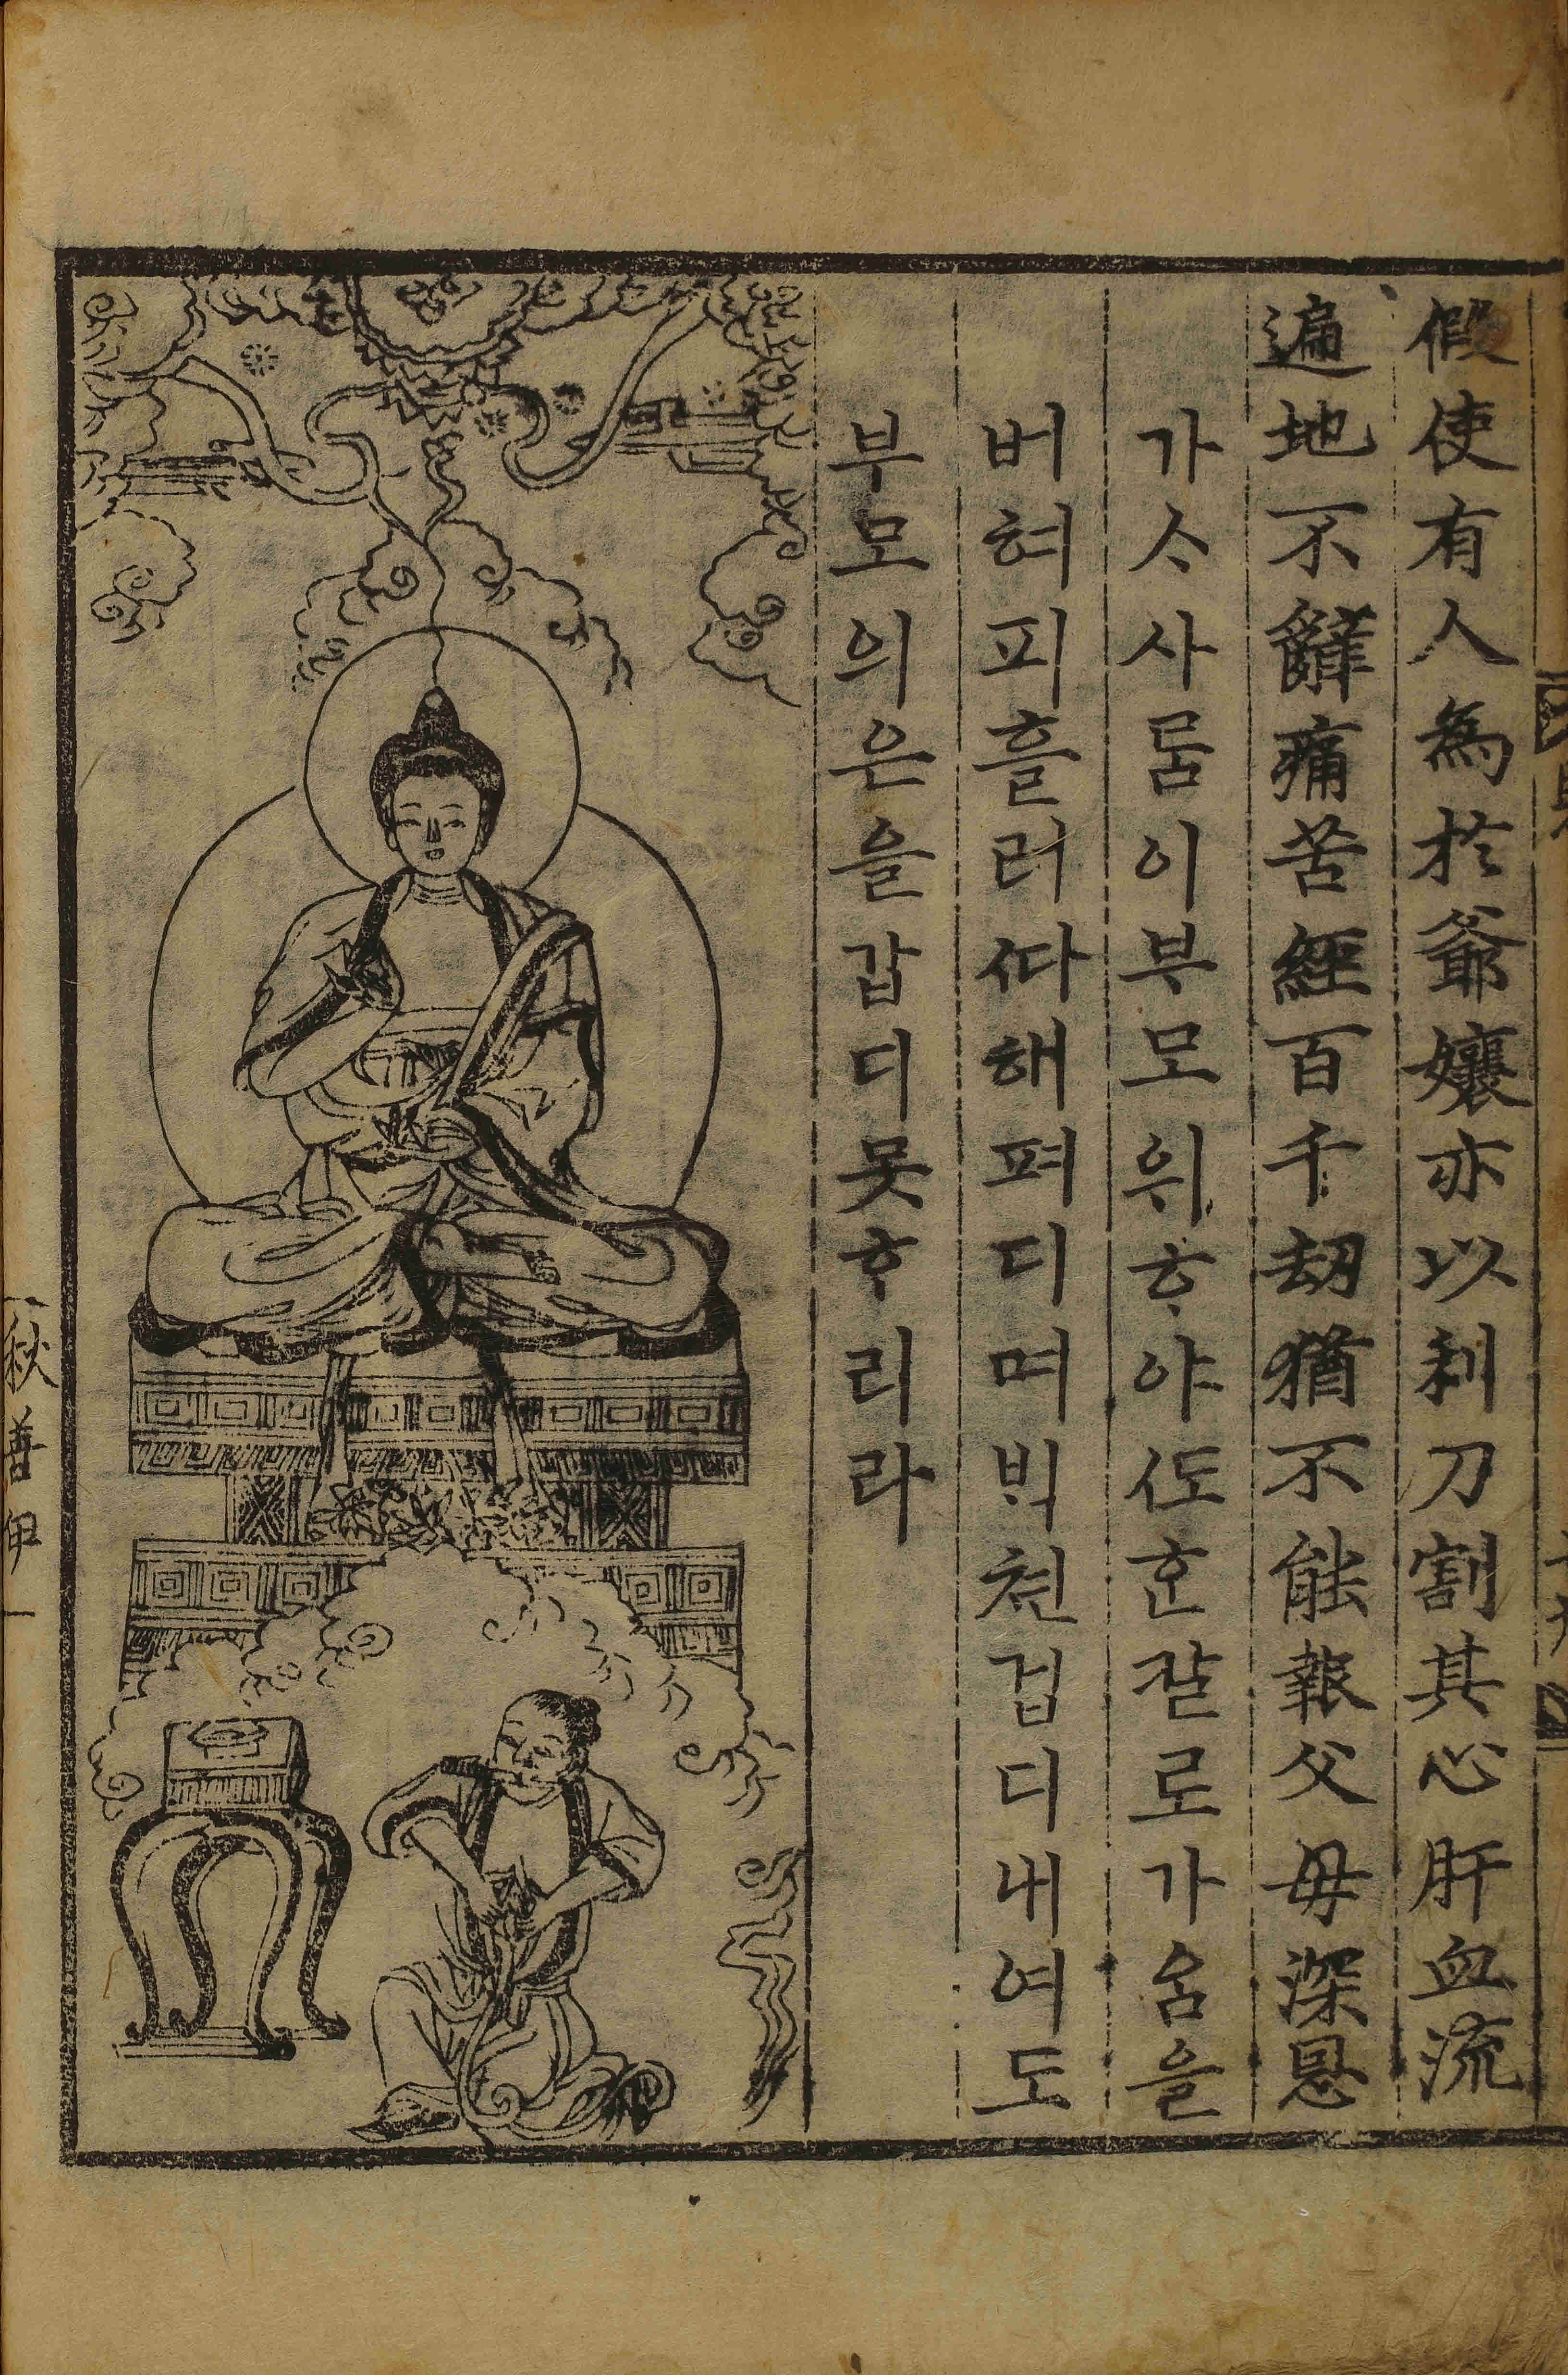 假使有人為於爺孃亦以利刀割其心肝血流
遍地不辭痛苦經百千劫猶不能報父母深恩
가ᄉᆞ사ᄅᆞᆷ이부모위ᄒᆞ야ᄯᅩᄒᆞᆫ갈로가ᄋᆞᆷ을
버혀피흘러ᄯᅡ해펴디며ᄇᆡᆨ천겁디내여도
부모의은을갑디못ᄒᆞ리라
秋善